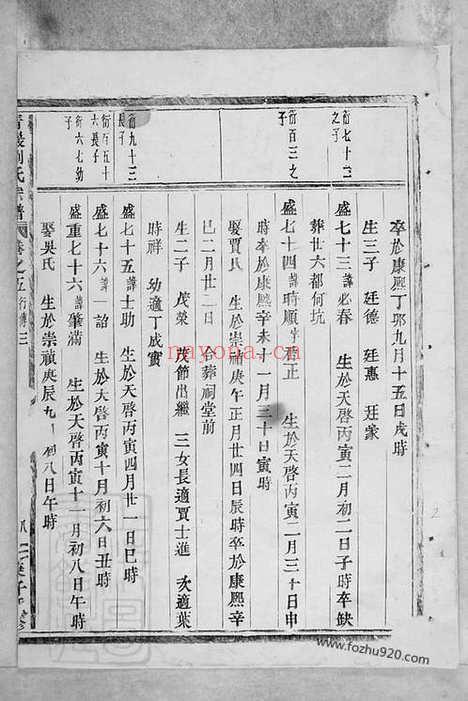 衍七十三
之子
衍百三之
子
衍九十三
長子
衍百五十
六長子
衍六七幼
子
卒於康熙丁卯九月十五日戌時
生三子 廷德 廷惠 廷篆
盛七十三諱必春 生於天啓丙寅二月初二日子時卒缺
葬廿六都何坑
盛七十四諱時順 字君正 生於天啓丙寅二月三十日申
時卒於康熙辛未十一月三十日寅時
娶賈氏 生於崇禎庚午正月廿四日辰時卒於康熙辛
巳二月廿二日 合葬祠堂前
生二子 茂榮 茂節出繼 三女長適賈士進 次適葉
時祥 幼適丁成實
盛七十五諱士助 生於天啓丙寅四月廿一日巳時
盛七十六諱一詔 生於天啓丙寅十月初六日丑時
盛重七十六諱肇滿 生於天啓丙寅十一月初八日午時
娶吳氏 生於崇禎庚辰九月初八日午時
劉氏宗譜 卷之五 行傳三
八
nayona.cn
www.fozhu920.com